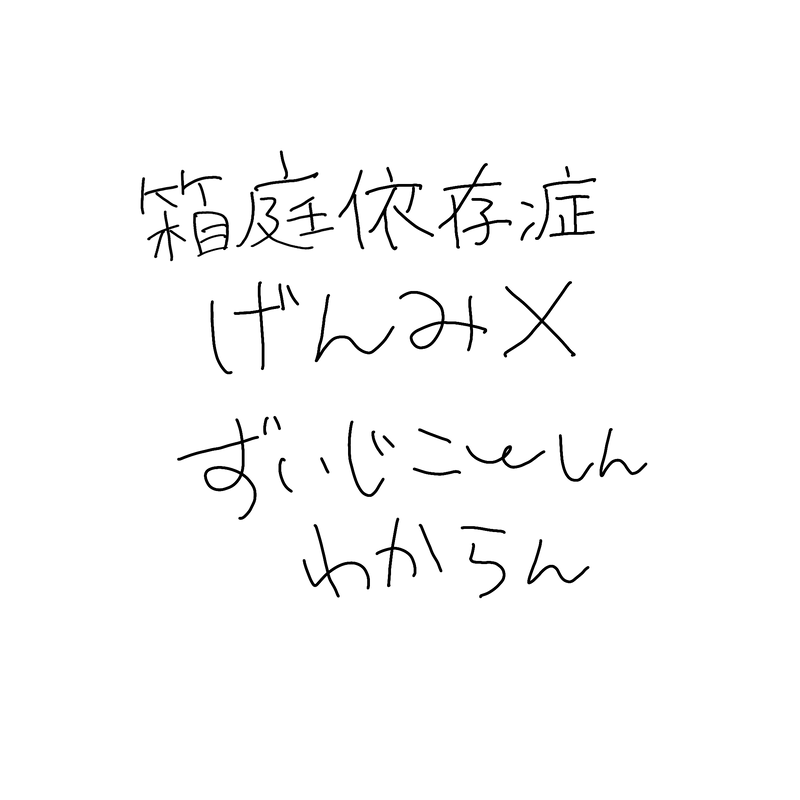 箱庭依存症
げんみ×
ずいじこうしん
わからん